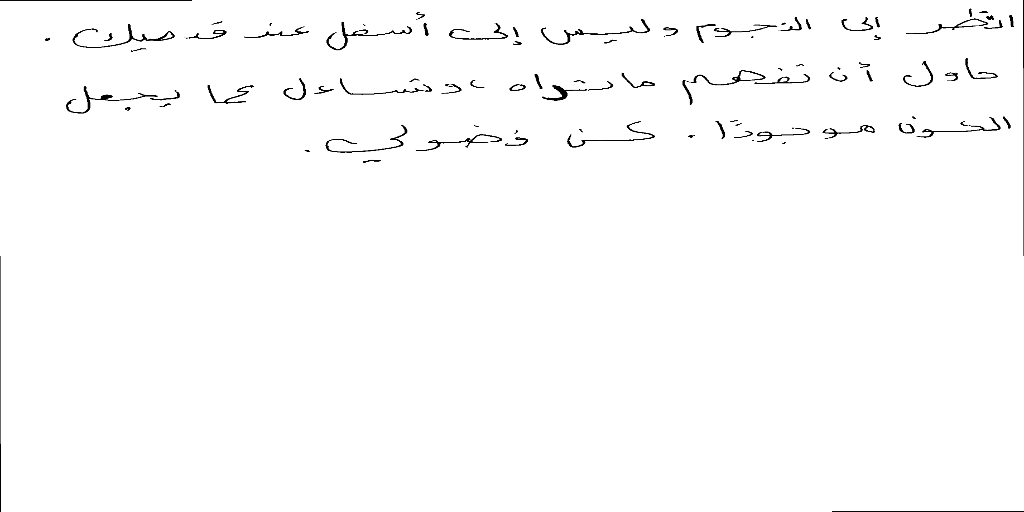 انظر إلى النجوم وليس إلى أسفل عند قدميك .
حاول أن تفهم ما تراه ، وتساءل عما يجعل
الكون موجودًا . كن فضولي .